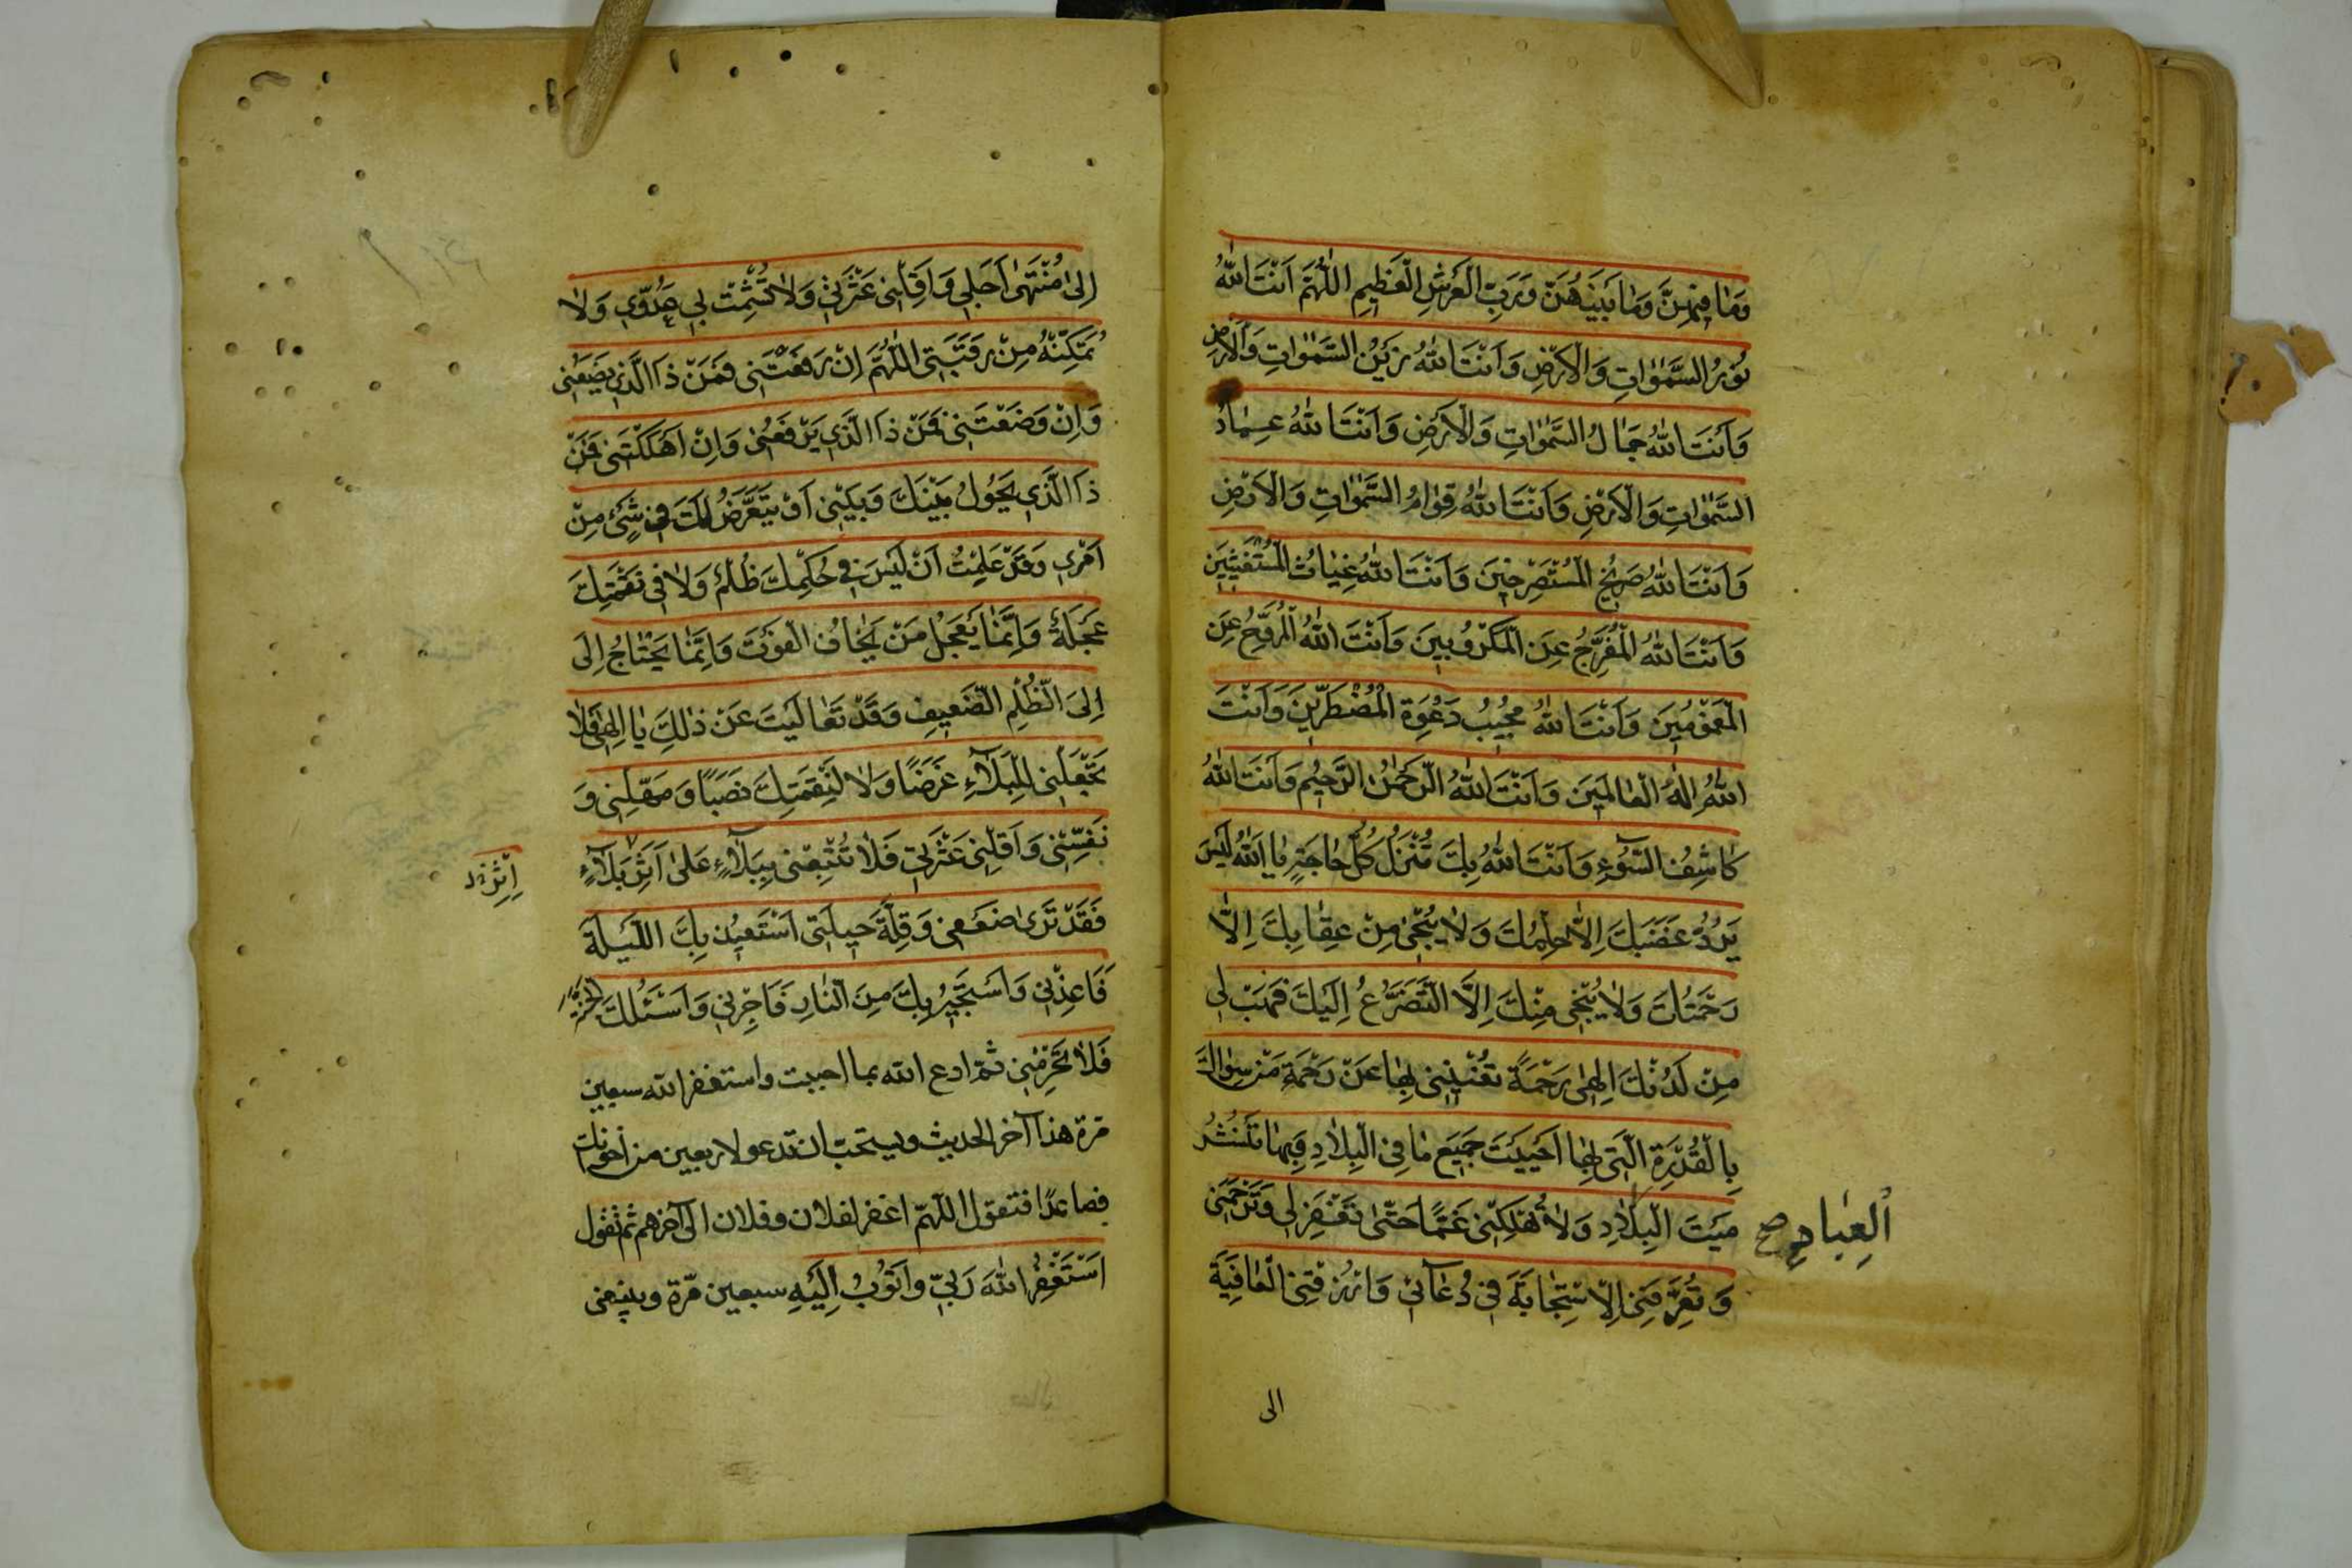 وَمٰا فِيهِنَّ وَمٰا بَيْنَهُنَّ وَرَبِّ الْعَرْشِ الْعَظِيمِ اَللّٰهُمَّ اَنْتَ اللّٰهُ
نُورُ السَّمٰوٰاتِ وَالْاَرْضِ وَاَنْتَ اللّٰهُ زَيْنُ السَّمٰوٰاتِ وَالْاَرْضِ
وَاَنْتَ اللّٰهُ جَمٰالُ السَّمٰوٰاتِ وَالْاَرْضِ وَاَنْتَ اللّٰهُ عِمٰادُ
السَّمٰوٰاتِ وَالْاَرْضِ وَاَنْتَ اللّٰهُ قِوٰامُ السَّمٰوٰاتِ وَالْاَرْضِ
وَاَنْتَ اللّٰهُ صَرِيخُ الْمُسْتَصْرِخِينَ وَاَنْتَ اللّٰهُ غِيٰاثُ الْمُسْتَغِيثِينَ
وَاَنْتَ اللّٰهُ الْمُفَرِّجُ عَنِ الْمَكْرُوبِينَ وَاَنْتَ اللّٰهُ الْمُرَوِّحُ عَنِ
الْمَغْمُومِينَ وَاَنْتَ اللّٰهُ مُجِيبُ دَعْوَةِ الْمُضْطَرِّينَ وَاَنْتَ
اللّٰهُ اِلٰهُ الْعٰالَمِينَ وَاَنْتَ اللّٰهُ الرَّحْمٰنُ الرَّحِيمُ وَاَنْتَ اللّٰهُ
كٰاشِفُ السُّوۤءِ وَاَنْتَ اللّٰهُ بِكَ مُنْزَلُ كُلِّ حٰاجَةٍ يٰا اَللّٰهُ لَيْسَ
يَرُدُّ غَضَبَكَ اِلّٰا حِلْمُكَ وَلٰا يُنْجٰى مِنْ عِقٰابِكَ اِلّٰا
رَحْمَتُكَ وَلٰا يُنْجٰى مِنْكَ اِلَّا التَّضَرُّعُ اِلَيْكَ فَهَبْ لِي
مِنْ لَدُنْكَ اِلٰهِى رَحْمَةً تُغْنِينِى بِهٰا عَنْ رَحْمَةِ مَنْ سِوٰاكَ
بِالْقُدْرَةِ الَّتِى بِهٰا اَحْيَيْتَ جَمِيعَ مٰا فِى الْبِلٰادِ وَبِهٰا تَنْشُرُ
مَيْتَ الْبِلٰادِ وَلٰا تُهْلِكْنِى غَمًّا حَتّٰى تَغْفِرَ لِي وَتَرْحَمَنِى
اَلْعِبٰادِ صح
وَتُعَرِّفَنِى الْاِسْتِجٰابَةَ فِى دُعٰاۤئِى وَارْزُقْنِى الْعٰافِيَةَ
الى
اِلىٰ مُنْتَهىٰ اَجَلِى وَاَقِلْنِى عَثْرَتِى وَلٰا تُشْمِتْ بِي عَدُوِّي وَلٰا
تُمَكِّنْهُ مِنْ رَقَبَتِى اَللّٰهُمَّ اِنْ رَفَعْتَنِى فَمَنْ ذَا الَّذِي يَضَعُنِى
وَاِنْ وَضَعْتَنِى فَمَنْ ذَا الَّذِي يَرْفَعُنِى وَاِنْ اَهْلَكْتَنِى فَمَنْ
ذَا الَّذِي يَحُولُ بَيْنَكَ وَبَيْنِى اَوْ يَتَعَرَّضُ لَكَ فِى شَىْءٍ مِنْ
اَمْرِي وَقَدْ عَلِمْتُ اَنْ لَيْسَ فِى حُكْمِكَ ظُلْمٌ وَلٰا فِى نَقِمَتِكَ
عَجَلَةٌ وَاِنَّمٰا يَعْجَلُ مَنْ يَخٰافُ الْفَوْتَ وَاِنَّمٰا يَحْتٰاجُ اِلَى
اِلَى الظُّلْمِ الضَّعِيفُ وَقَدْ تَعٰالَيْتَ عَنْ ذٰلِكَ يٰا اِلٰهِى فَلٰا
تَجْعَلْنِى لِلْبَلٰۤاءِ غَرَضًا وَلٰا لِنَقِمَتِكَ نَصَبًا وَمَهِّلْنِى وَ
نَفِّسْنِى وَاَقِلْنِى عَثْرَتِى فَلٰا تُتْبِعْنِى بِبَلٰۤاءٍ عَلىٰ اَثَرِ بَلٰۤاءٍ
اِثْرِ
فَقَدْ تَرىٰ ضَعْفِى وَقِلَّةَ حِيلَتِى اَسْتَعِيذُ بِكَ اللَّيْلَةَ
فَاَعِذْنِى وَاَسْتَجِيرُ بِكَ مِنَ النّٰارِ فَاَجِرْنِى وَاَسْئَلُكَ الْجَنَّةَ
فَلٰا تَحْرِمْنِى ثمّ ادع الله بما احببت واستغفر الله سبعين
مرّة هذا آخر الحديث ويستحبّ ان تدعو لاربعين من اخوانك
فصاعدًا فتقول اللّهمّ اغفر لفلان وفلان الى آخرهم ثم تقول
اَسْتَغْفِرُ اللّٰهَ رَبِّي وَاَتُوبُ اِلَيْهِ سبعين مرّة وينبغى